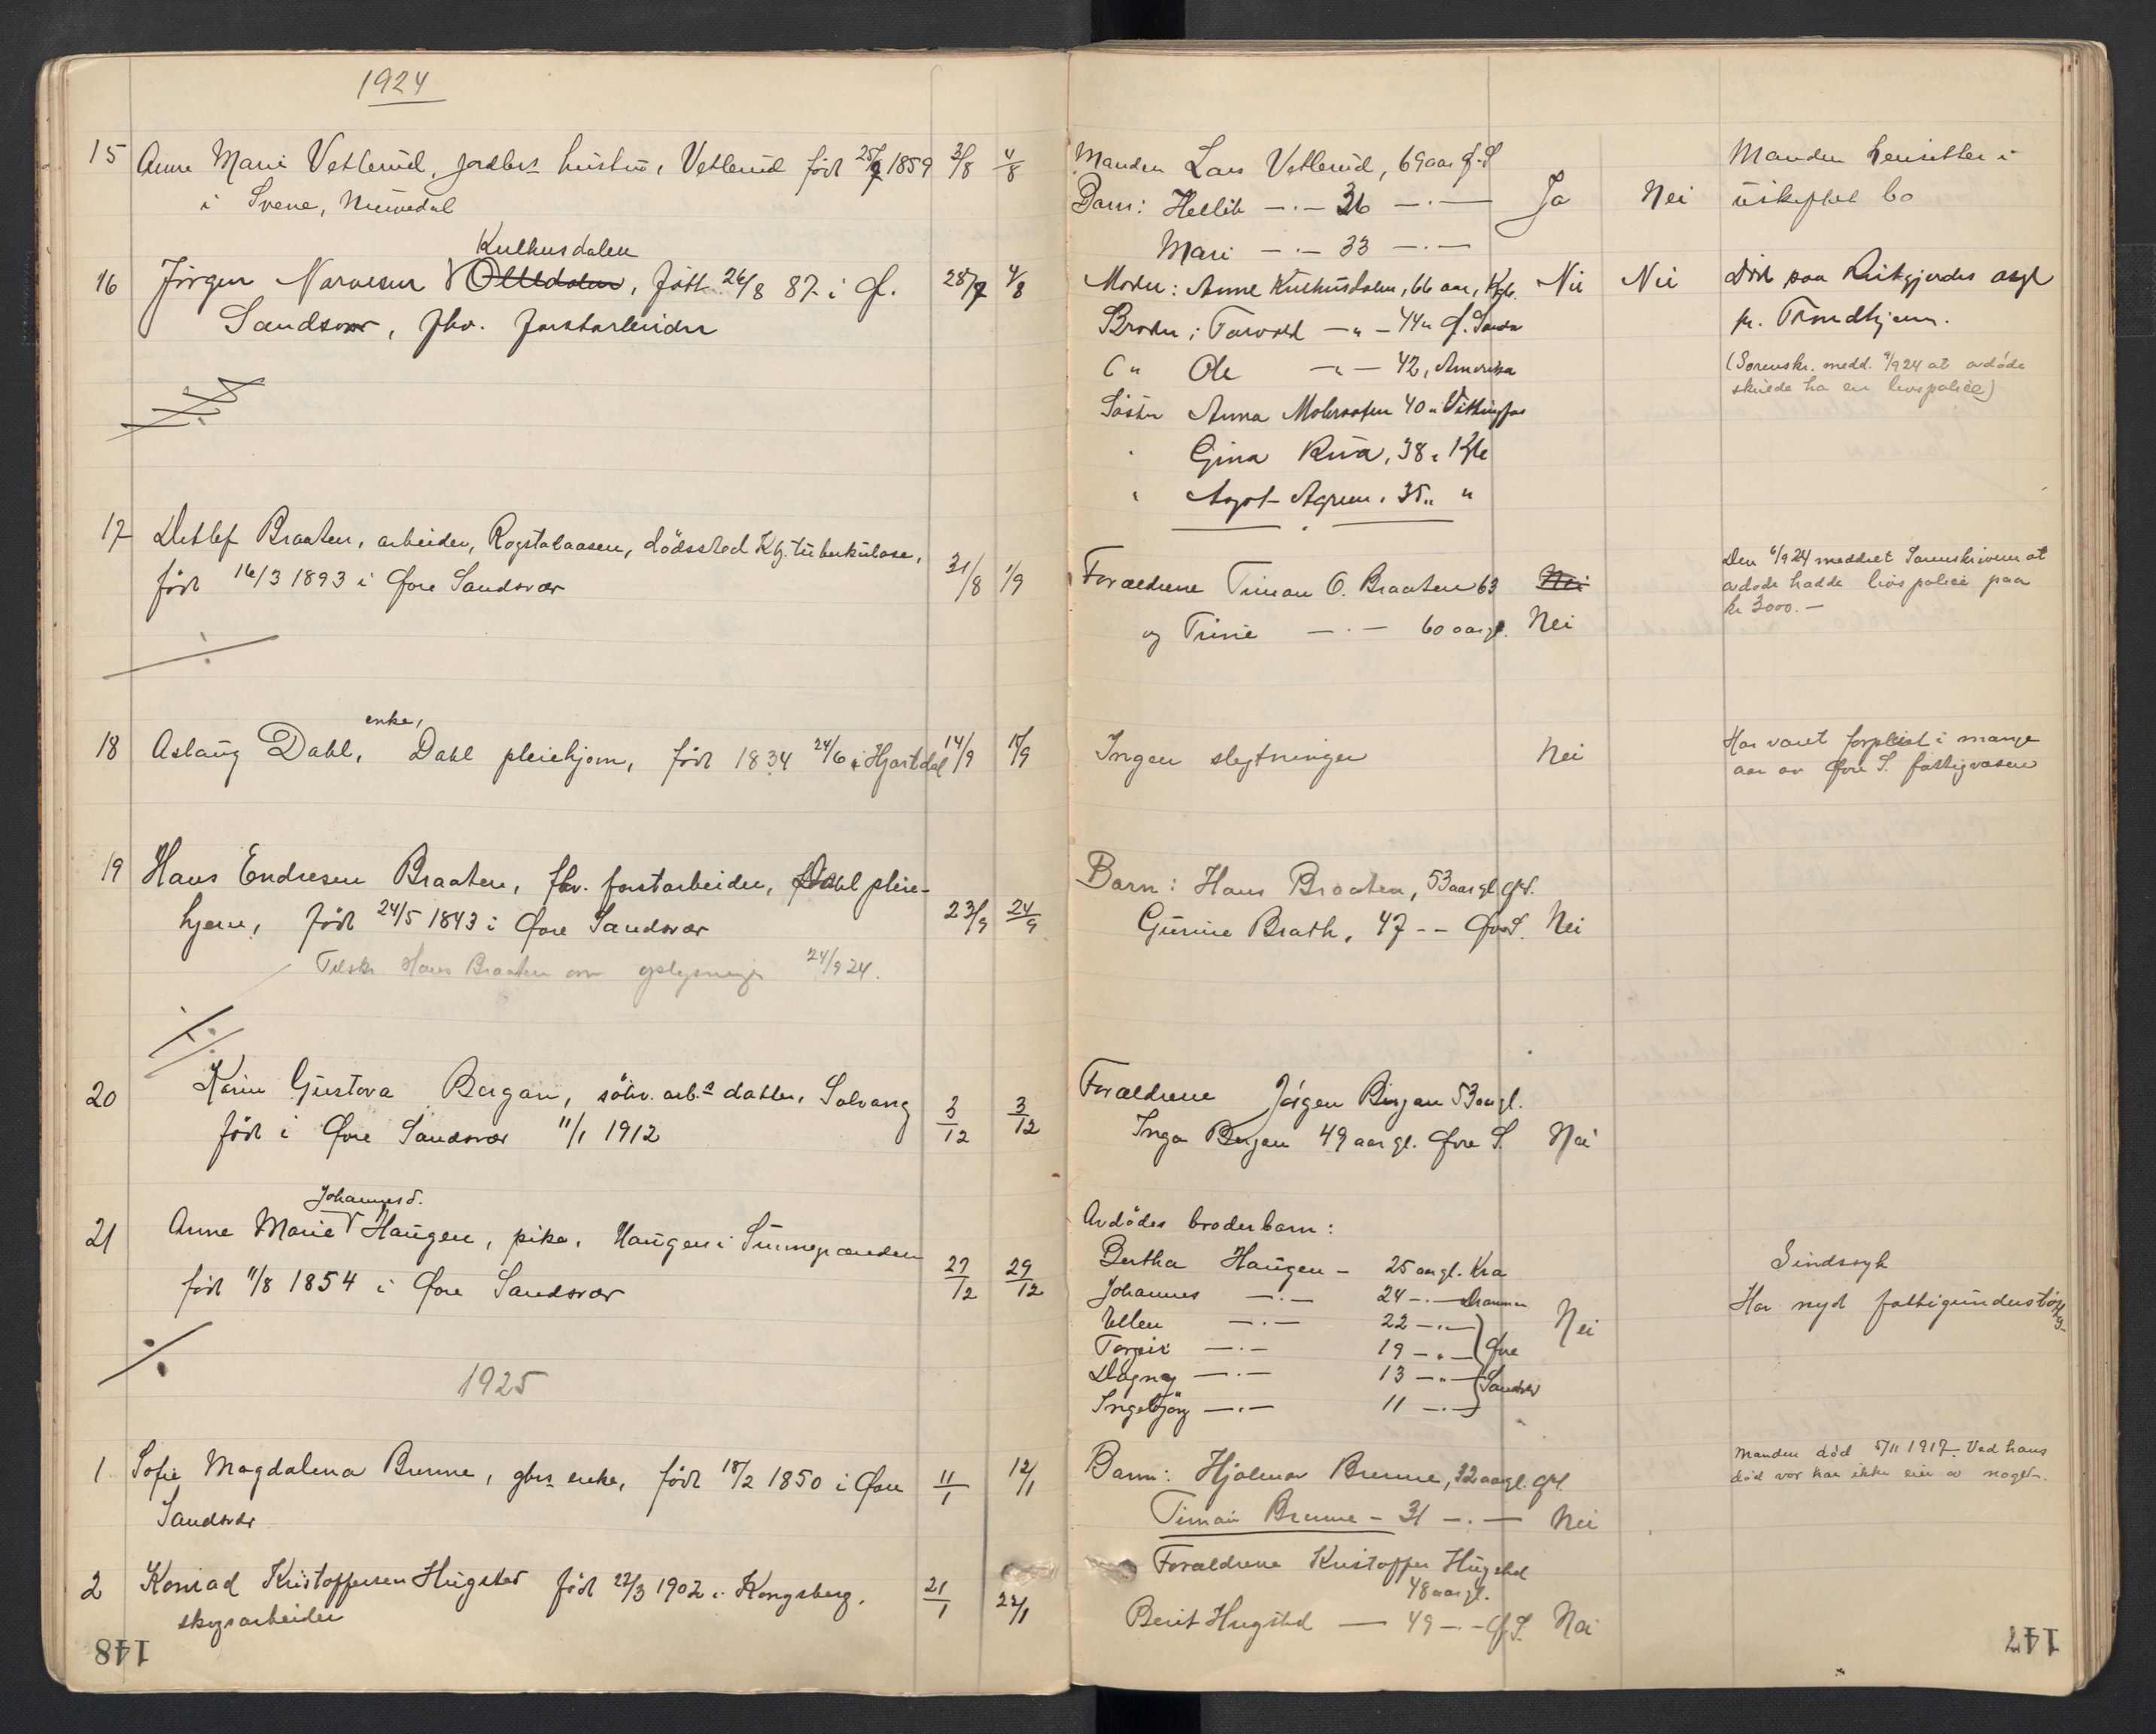 1924
15 Anne Marie Vetlerud, jordbrs hustru, Vetlerud født 25/9 1859 3/8 4/8
i Svene, Numedal
Manden Lars Vetlerud, 69 aar Ø.S
Barn: Hellik —.— 36 —.—
Mari —.— 33 —.—
Ja Nei
Manden hensitter i
uskiftet bo
Kulhusdalen
16 Jørgen Narvesen Olledalen, født 26/8 87 i Ø. 28/7 4/8
Sandsvær, fhv. forstarbeider
Moder: Anne Kulhusdalen, 66 aar, Kgb.
Broder: Torvald —"— 44 " Ø. Sandsv
" Ole —"— 42, Amerika
Søster Anna Mobraaten 40 " Vittingfos
Gina Rua, 38 " Kgb
" Agot Agren, 35 " "
Nei Nei
Død paa Reitgjerdet asyl
pr. Trondhjem.
(Sorenskr. medd. 9/9 24 at avdøde
skulde ha en livspolice)
17 Detlef Braaten, arbeider, Rogstadaasen, dødssted Kbg. tuberkulose,
født 16/3 1893 i Øvre Sandsvær 31/8 1/9
Forældrene Timan O. Braaten 63 Nei
og Trine —.— 60 aar gl. Nei
Den 6/9 24 meddelt Sorenskriveren at
avdøde hadde livspolice paa
kr 3000.—
enke,
18 Aslaug Dahl, Dahl pleiehjem, født 1834 24/6 i Hjartdal 14/9 15/9
Ingen slegtninger Nei
Har været forpleiet i mange
aar av Øvre S. fattigvæsen
19 Hans Endresen Braaten, fhv. forstarbeider, Dahl pleie-
hjem, født 24/5 1843 i Øvre Sandsvær 23/9 24/9
Tilskr Hans Braaten om oplysninger 24/9 24.
Barn: Hans Braaten, 53 aar gl ØS.
Gunine Brath, 47 -- Øvre S. Nei
20 Karin Gustava Bergan, sølvv. arb.s datter, Solvang
født i Øvre Sandsvær 11/1 1912 3/12 3/12
Forældrene Jørgen Bergan 53 aar gl.
Inga Bergan 49 aar gl. Øvre S. Nei
Johannesd.
21 Anne Marie Haugen, pike, Haugen i
født 11/8 1854 i Øvre Sandsvær 27/12 29/12
Avdødes broderbarn:
Bertha Haugen — 25 aar gl. Kra
Johannes —.— 24 —.— Drammen
Ellen —.— 22 —.—
Torgeir —.— 19 —.— Øvre
Dagny —.— 13 —.— Sandsvær
Ingebjørg —.— 11 —.—
Nei
Sindssyk
Har nydt fattigunderstøttelse
1925
1 Sofie Magdalena Brenne, gbrs enke, født 18/2 1850 i Øvre 11/1 12/1
Sandsvær
Barn: Hjalmar Brenne, 32 aar gl. ØS.
Timan Brenne — 31 —.— Nei
Manden død 5/11 1917. Ved hans
død var han ikke eier av noget.
2 Konrad Kristoffersen Hugstad født 22/3 1902 i Kongsberg, 21/1 22/1
skogsarbeider
Forældrene Kristoffer Hugstad
48 aar gl.
Berit Hugstad — 49 — Ø.S. Nei
148
147